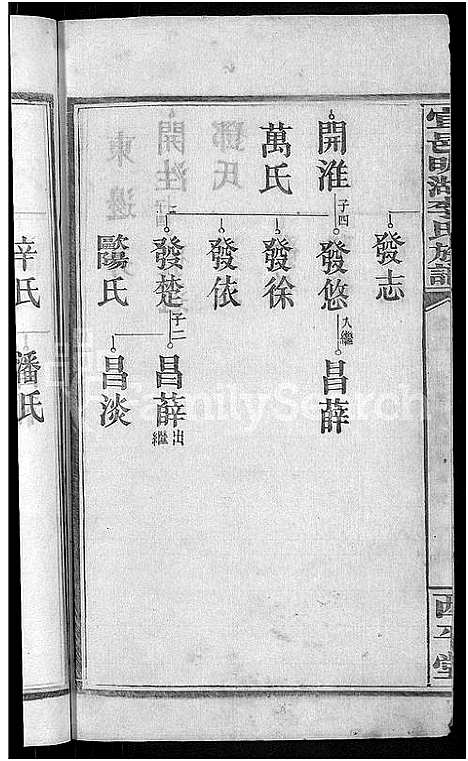 宜邑明湖李氏族譜
西平堂
發志
開淮
子四
發悠
入繼
昌薛
萬氏
發徐
發依
發楚
子二
昌薛
出繼
歐陽氏
昌淡
辛氏
潘氏
FamilySearch